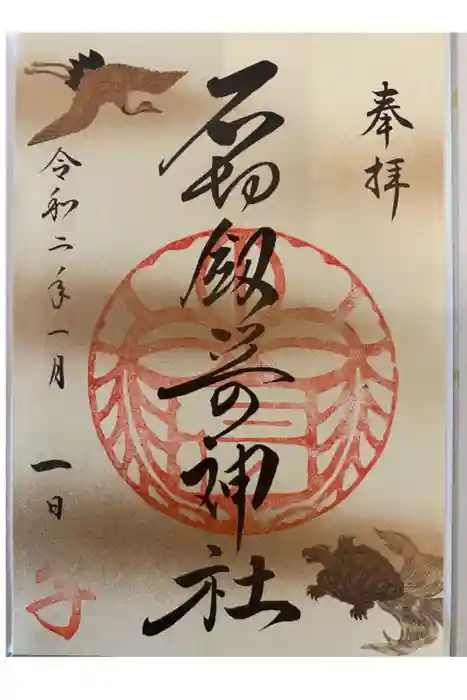 奉拝
石切劔箭神社
令和二年一月一日
子